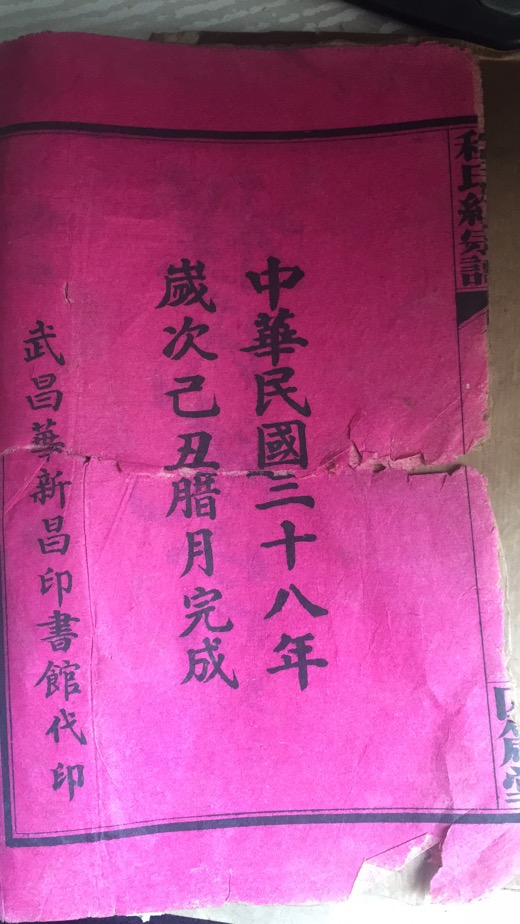 中華民國三十八年
歲次己丑腊月完成
武昌華新昌印書館代印